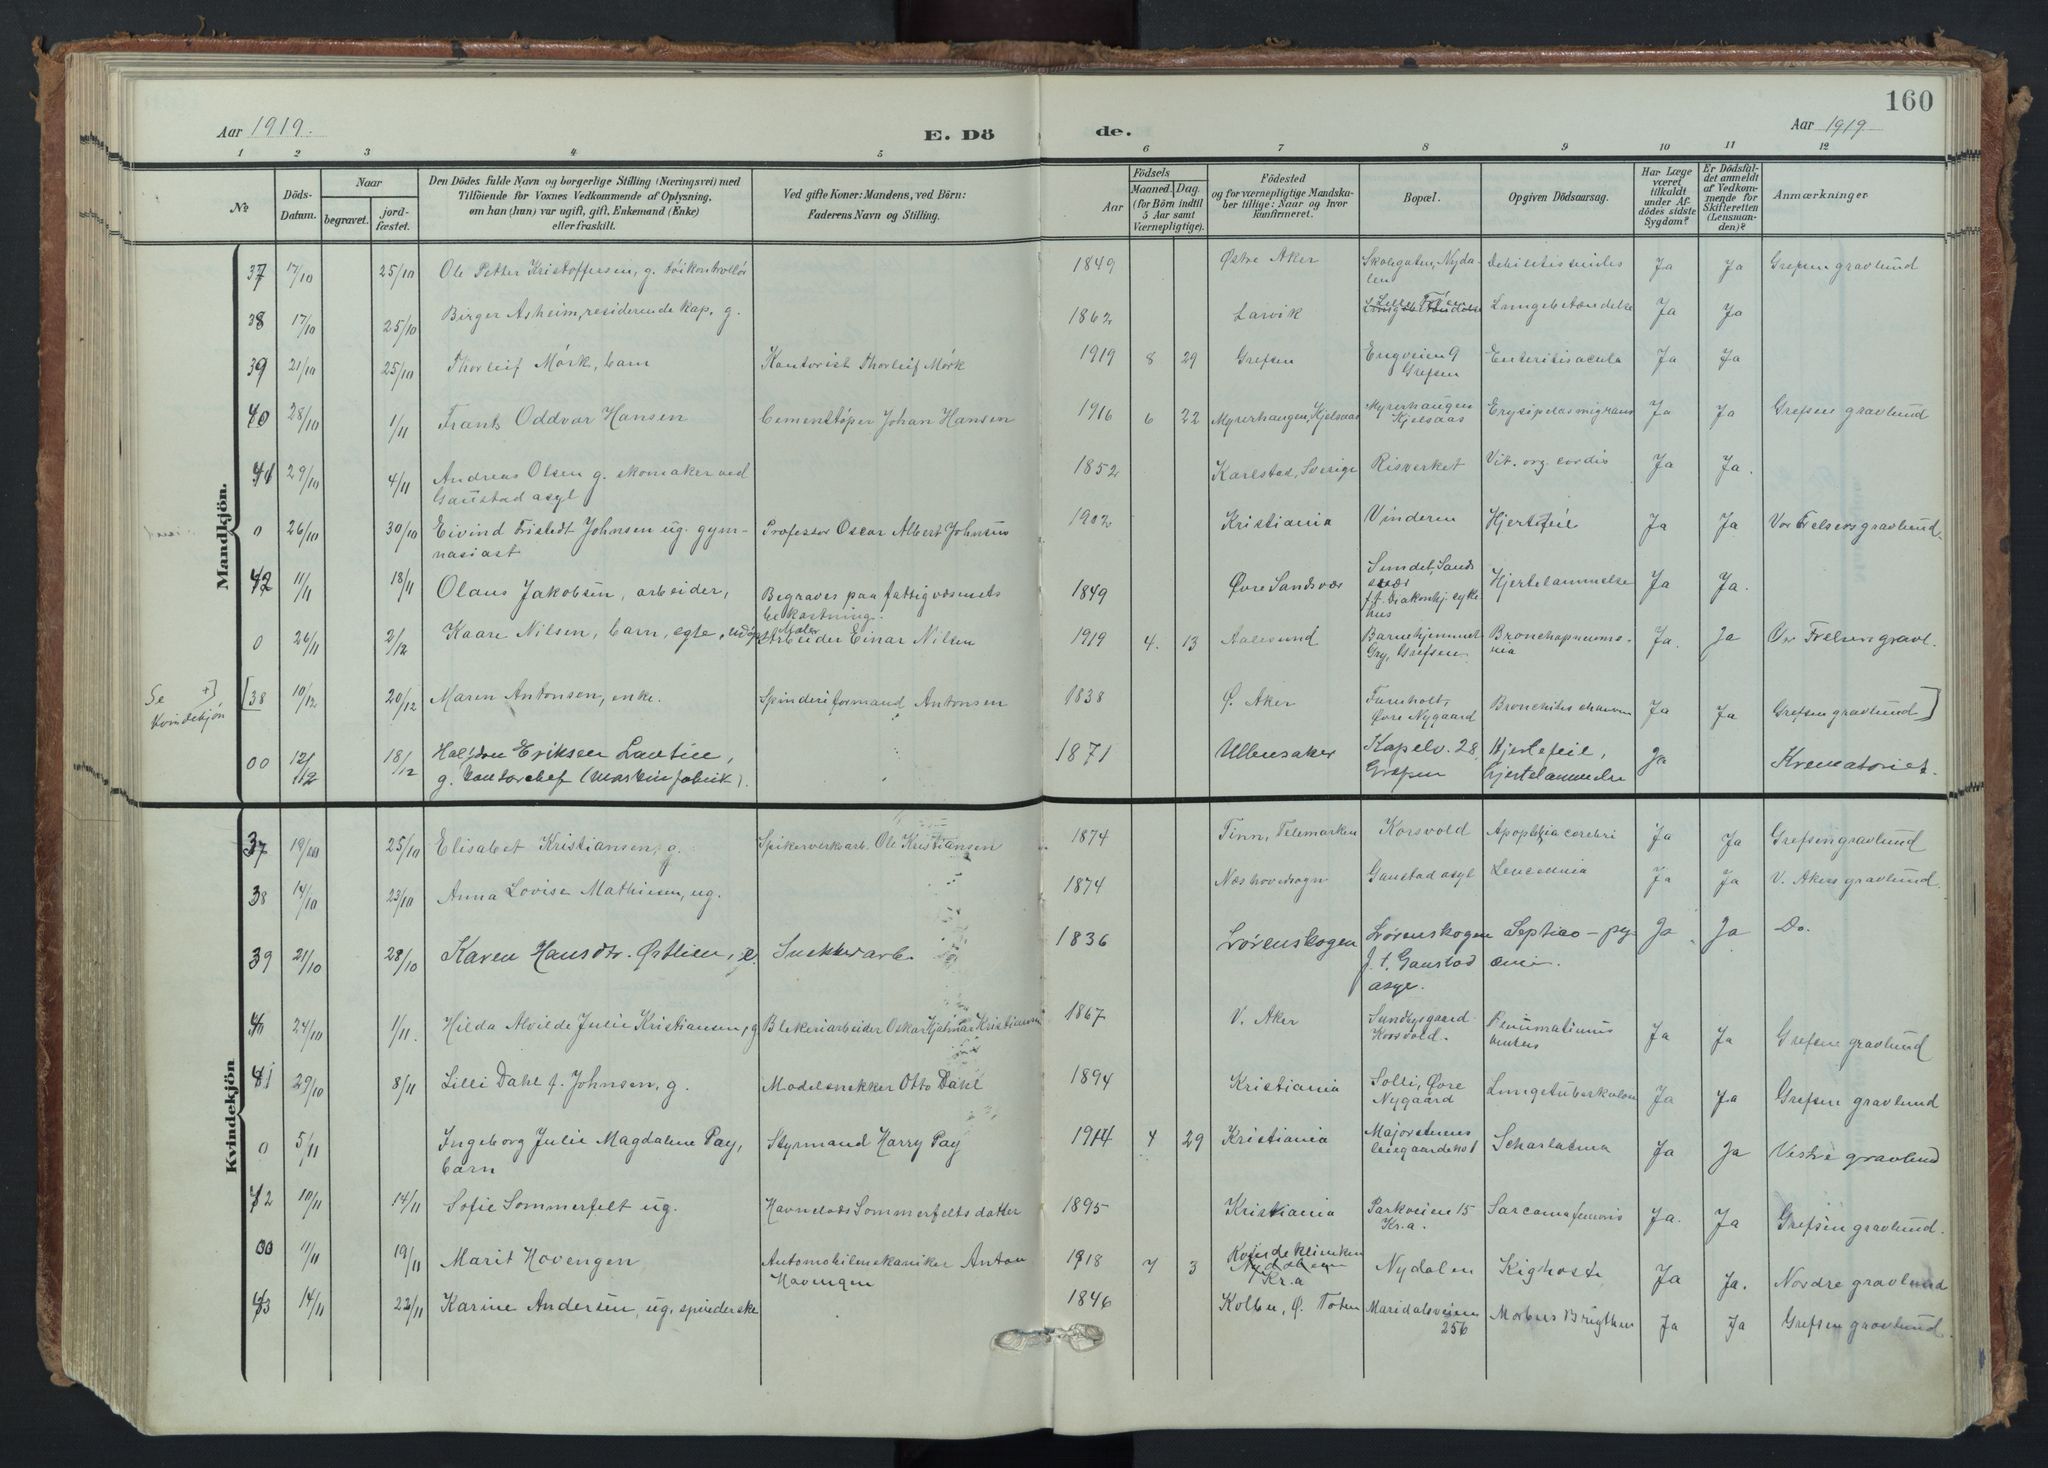 160
Aar 1919.
E. Dö
de.
Aar 1919
1 2 3 4 5 6 7 8 9 10 11 12
No
Döds-
Datum.
Naar
begravet.
jord-
fæstet.
Den Dödes fulde Navn og borgerlige Stilling (Næringsvei) med
Tilföiende for Voxnes Vedkommende af Oplysning,
om han (hun) var ugift, gift, Enkemand (Enke)
eller fraskilt.
Ved gifte Koner: Mandens, ved Börn:
Faderens Navn og Stilling.
Aar
Födsels
Maaned. Dag.
(for Börn indtil
5 Aar samt
Værnepligtige).
Födested
og for værnepligtige Mandska-
ber tillige: Naar og hvor
konfirmeret.
Bopæl.
Opgiven Dödsaarsag.
Har Læge
været
tilkaldt
under Af-
dödes sidste
Sygdom?
Er Dödsfal-
det anmeldt
af Vedkom-
mende for
Skifteretten
(Lensman-
den)?
Anmærkninger
Mandkjön.
37 17/10 25/10 Ole Petter Kristoffersen, g. 1849 Østre Aker Skolegaten, Nyda-
len Ja Ja Grefsen gravlund
38 17/10 25/10 Birger Asheim, residerende kap, g. 1862 Larvik Lungebetændelse Ja Ja
39 21/10 25/10 Thorleif Mörk, barn Kontorist Thorleif Mörk 1919 8 29 Grefsen Engveien 9
Grefsen Enteritis acuta Ja Ja
40 28/10 1/11 Frantz Oddvar Hansen Cementstöper Johan Hansen 1916 6 22 Myrerhaugen, Kjelsaas Myrerhaugen
Kjelsaas Erysipelas migrans Ja Ja Grefsen gravlund
41 29/10 4/11 Andreas Olsen g. skomaker ved
Gaustad asyl 1852 Karlstad, Sverige Risverket Vit. org. cordis Ja Ja.
0 26/10 30/10 Eivind Fristedt Johnsen ug. gym-
nasiast Professor Oscar Albert Johnsen 1902 Kristiania Vinderen Hjertefeil Ja Ja Vor Frelsers gravlund.
42 11/11 18/11 Olaus Jakobsen, arbeider, Begraves paa fattigvæsenets
bekostning. 1849 Øvre Sandsvær Hjertelammelse Ja Ja.
0 26/11 2/12 Kaare Nilsen, barn, egte, Arbeider Einar Nilsen 1919 4. 13 Aalesund Barnehjemmet
Gry, Grefsen Bronchopneumo-
nia Ja. Ja Vor Frelsers gravl.
Se
Kvindekjön
+] [38 10/12 20/12 Maren Antonsen, enke. Spinderiformand Antonsen 1838 Ø. Aker Furuholt,
Øvre Nygaard Ja Ja Grefsen gravlund]
00 12/12 18/12 Halfdan Eriksen
g. kontorchef 1871 Ullensaker Kapelv. 28,
Grefsen Hjertefeil,
hjertelammelse Ja Krematoriet.
Kvindekjön
37 19/10 25/10 Elisabet Kristiansen, g. Spikerverksarb. Ole Kristiansen 1874 Tinn, Telemarken Korsvold Apoplexia cerebri Ja Ja Grefsen gravlund
38 14/10 23/10 Anna Lovise Mathiesen, ug. 1874 Næs hovedsogn Gaustad asyl Leucemia Ja Ja V. Akers gravlund.
39 21/10 28/10 Karen Hansdtr. Østlien, e. Snekkerarb. 1836 Lörenskogen Lörenskogen
f. t. Gaustad
asyl. Septico-py-
æmi. Ja Ja Do.
40 24/10 1/11 Hilda Alvilde Julie Kristiansen, g Blekeriarbeider Oskar Hjalmar Kristiansen 1867 V. Aker
Korsvold. Ja Ja Grefsen gravlund
41 29/10 8/11 Lilli Dahl f. Johnsen, g. Modelsnekker Otto Dahl 1894 Kristiania Solli, Øvre
Nygaard Lungetuberkulose Ja Ja Grefsen gravlund
0 5/11 Ingeborg Julie Magdalene Pay,
barn Styrmand Harry Pay 1914 4 29 Kristiania Majorstuens
Scharlatina Ja Ja Vestre gravlund
42 10/11 14/11 Sofie Sommerfelt ug. Havnelods Sommerfelts datter 1895 Kristiania Parkveien 15
Kr.a Sarcoma femoris Ja. Ja Grefsen gravlund.
00 11/11 19/11 Marit Hovengen Automobilmekaniker Anton
Hovengen 1918 7 3 Kvindeklinikken
Kr.a Nydalen Kighoste Ja Ja. Nordre gravlund
43 14/11 22/11 Karine Andersen, ug. spinderske 1846 Kolbu, Ø. Toten Maridalsveien
256 Morbus Brigthii Ja Ja Grefsen gravlund.